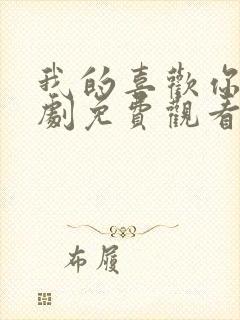 我的喜歡你
劇免費觀看
布履